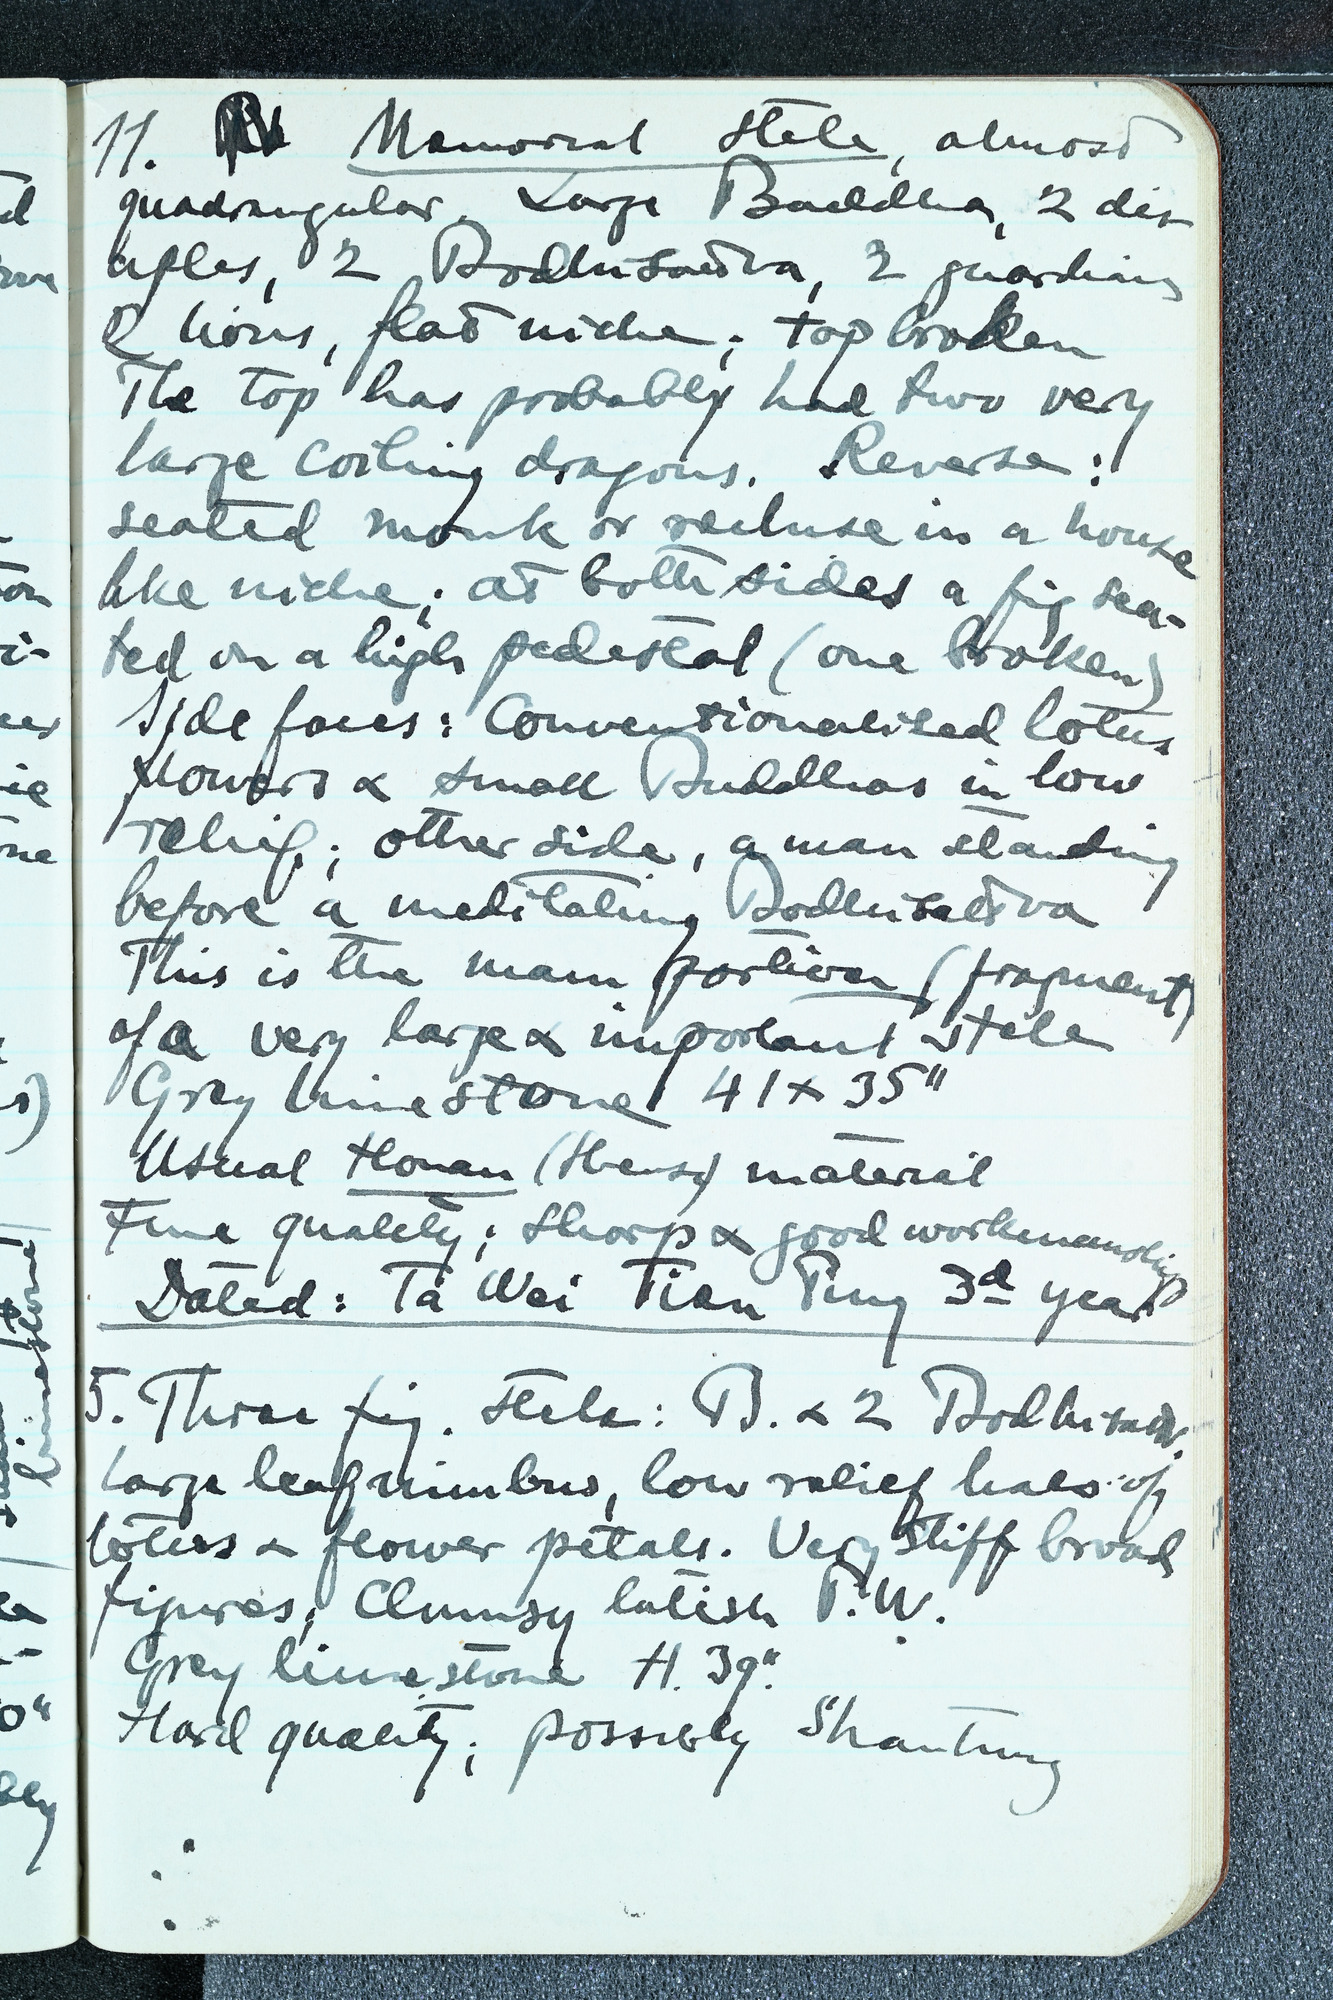 11. Memorial stele, almost
quadrangular. Large Buddha, 2 dis-
ciples, 2 Bodhisattva, 2 guardians
2 lions, flat niche; top broken
The top has probably had two very
large coiling dragons. Reverse:
seated monk or recluse in a house
like niche; at both sides a fig sea-
ted on a high pedestal (one broken)
Side faces: Conventionalised lotus
flowers & small Buddhas in low
relief; other side, a man standing
before a meditating Bodhisattva
This is the main portion (fragment)
of a very large & important stele
Grey limestone 41 x 35"
Usual Honan material
Fine quality; sharp & good workmanship
Dated: Ta Wei Tien Ping 3d year
5. Three fig. stele: B. & 2 Bodhisattv.
large leaf nimbus, low relief halos of
lotus & flower petals. Very stiff broad
figures; Clumsy latish T.W.
Grey limestone H. 39".
Hard quality; possibly Shantung